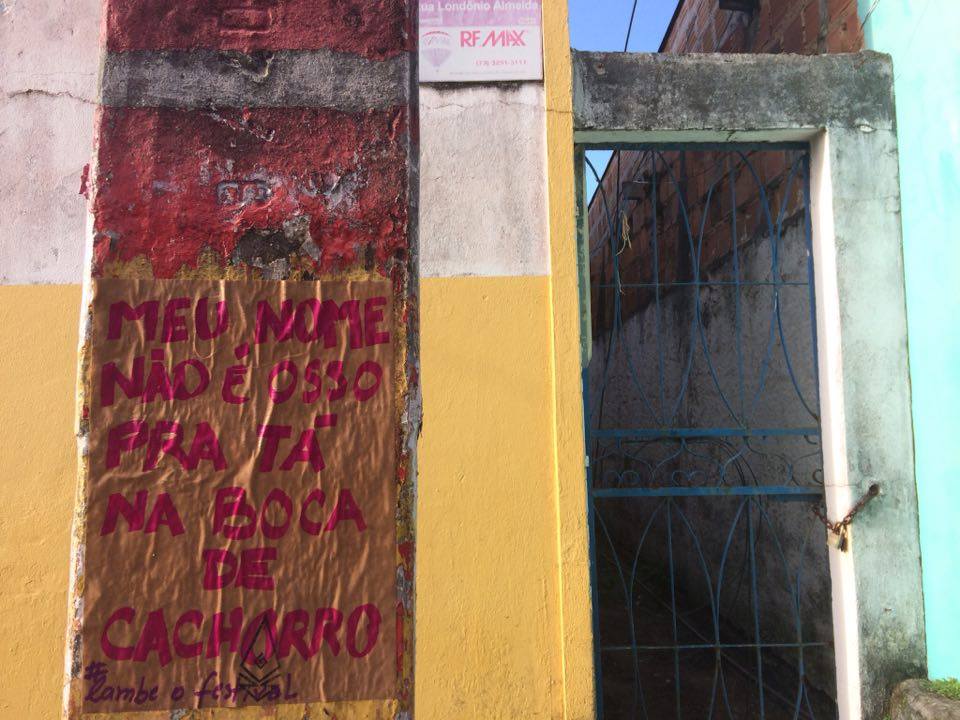 Rua Londônio Almeida
RE/MAX
(73) 3251-3111
MEU NOME
NÃO É OSSO
PRA TÁ
NA BOCA
DE
CACHORRO
#lambe o festival